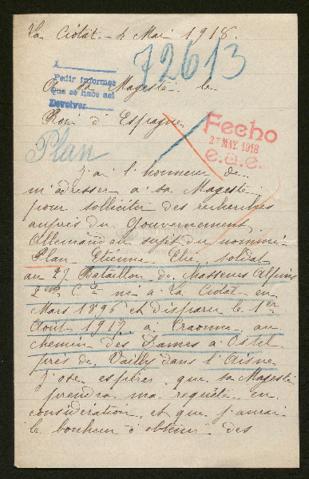 La Ciotat - 4 Mai 1918.
72613
A sa Majesté le
Pedir informes
que se hace acl
Devolver.
Roi d'Espagne
Fecho
27 MAY. 1918
Plan
J'ai l'honneur de
m'adresser à sa Majesté
pour solliciter des recherches
auprès du Gouvernement
Allemand au sujet du nommé
Plan Etienne Elie soldat
au 27 Bataillon de Chasseurs Alpins
2me Cie né à la Ciotat en
Mars 1896 et disparu le 1er
Août 1917 à Craonne au
chemin des Dames à Ostel
près de Vailly dans l'Aisne
J'ose espérer que sa Majesté
prendra ma requête en
considération et que j'aurai
le bonheur d'obtenir des